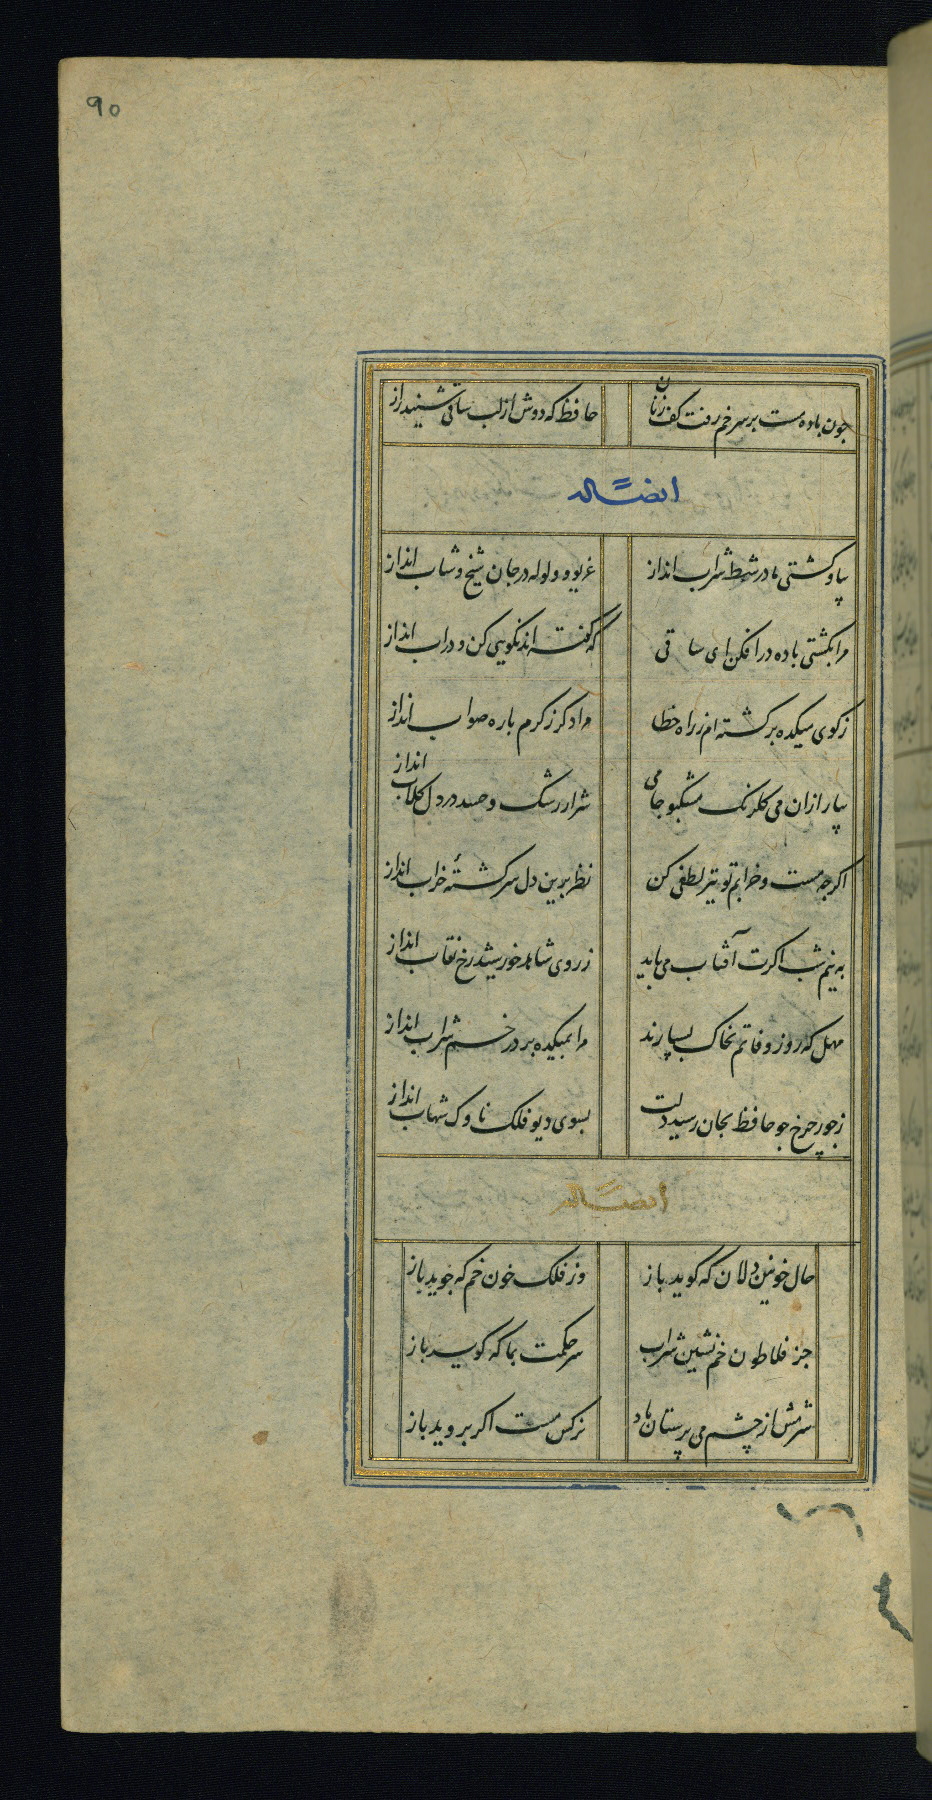 90
چون باده مست بر سر خم رفت کف زنان
حافظ که دوش از لب ساقی شنید راز
ایضاً له
بیا و کشتی ما در شط شراب انداز
غریو و ولوله در جان شیخ و شاب انداز
مرا بکشتی باده در افکن ای ساقی
که گفته اند نکویی کن و در اب انداز
ز کوی میکده برگشته ام ز راه خطا
مرا دگر ز کرم با ره صواب انداز
بیار ازان می کلرنک مشکبو جامی
شرار رشک و حسد در دل کلاب انداز
اگرچه مست و خرابم تو نیز لطفی کن
نظر برین دل سرکشتهٔ خراب انداز
به نیم شب اکرت آفتاب می باید
ز روی شاهد خورشید رخ نقاب انداز
مهل که روز وفاتم بخاک بسپارند
مرا بمیکده بر در خم شراب انداز
ز جور چرخ جو حافظ بجان رسید دلت
بسوی دیو فلک ناوک شهاب انداز
ایضاً له
حال خونین دلان که کوید باز
وز فلک خون خم که جوید باز
جز فلاطون خم نشین شراب
سر حکمت بما که کوید باز
شرمش از چشم می پرستان باد
نرکس مست اکر بروید باز